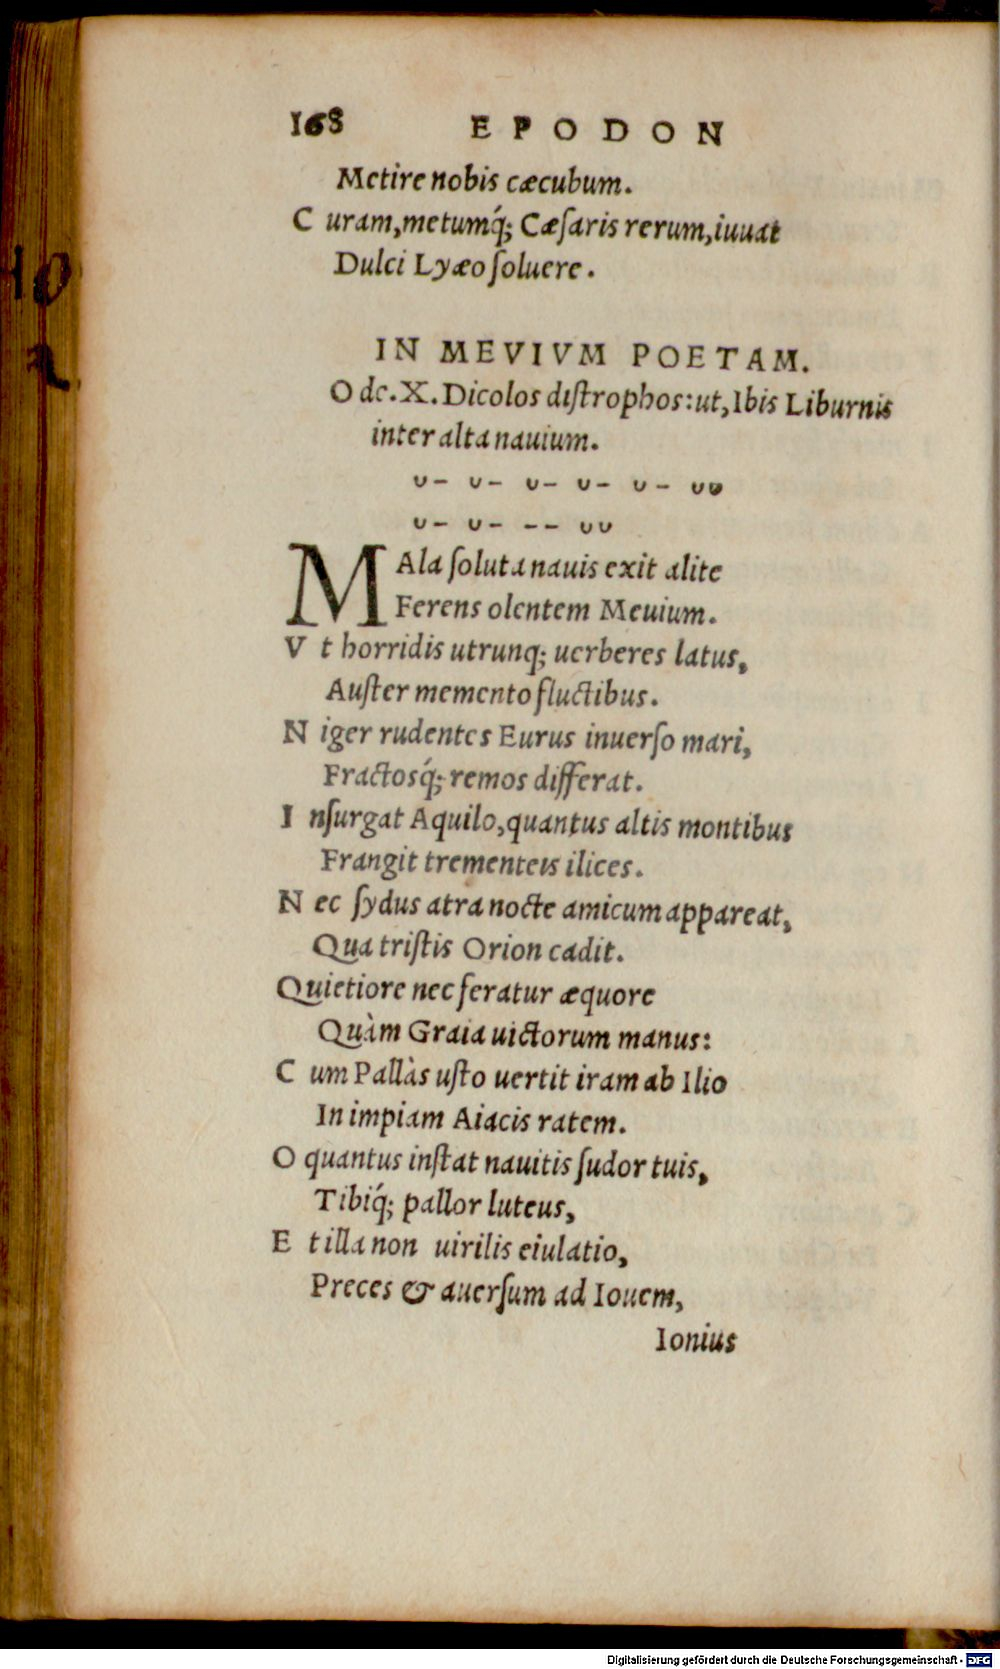 168 EPODON
Metire nobis cæcubum.
C uram, metumq́; Cæſaris rerum, iuuat
Dulci Lyæo ſoluere.
IN MEVIVM POETAM.
Ode. X. Dicolos diſtrophos: ut, Ibis Liburnis
inter alta nauium.
∪– ∪– ∪– ∪– ∪– ∪∪
∪– ∪– –– ∪∪
MAla ſoluta nauis exit alite
Ferens olentem Meuium.
V t horridis utrunq; uerberes latus,
Auſter memento fluctibus.
N iger rudentes Eurus inuerſo mari,
Fractosq́; remos differat.
I nſurgat Aquilo, quantus altis montibus
Frangit trementeis ilices.
N ec ſydus atra nocte amicum appareat,
Qua triſtis Orion cadit.
Quietiore nec feratur æquore
Quàm Graia uictorum manus:
C um Pallàs uſto uertit iram ab Ilio
In impiam Aiacis ratem.
O quantus inſtat nauitis ſudor tuis,
Tibiq́; pallor luteus,
E t illa non uirilis eiulatio,
Preces & auerſum ad Iouem,
Ionius
Digitalisierung gefördert durch die Deutsche Forschungsgemeinschaft - DFG